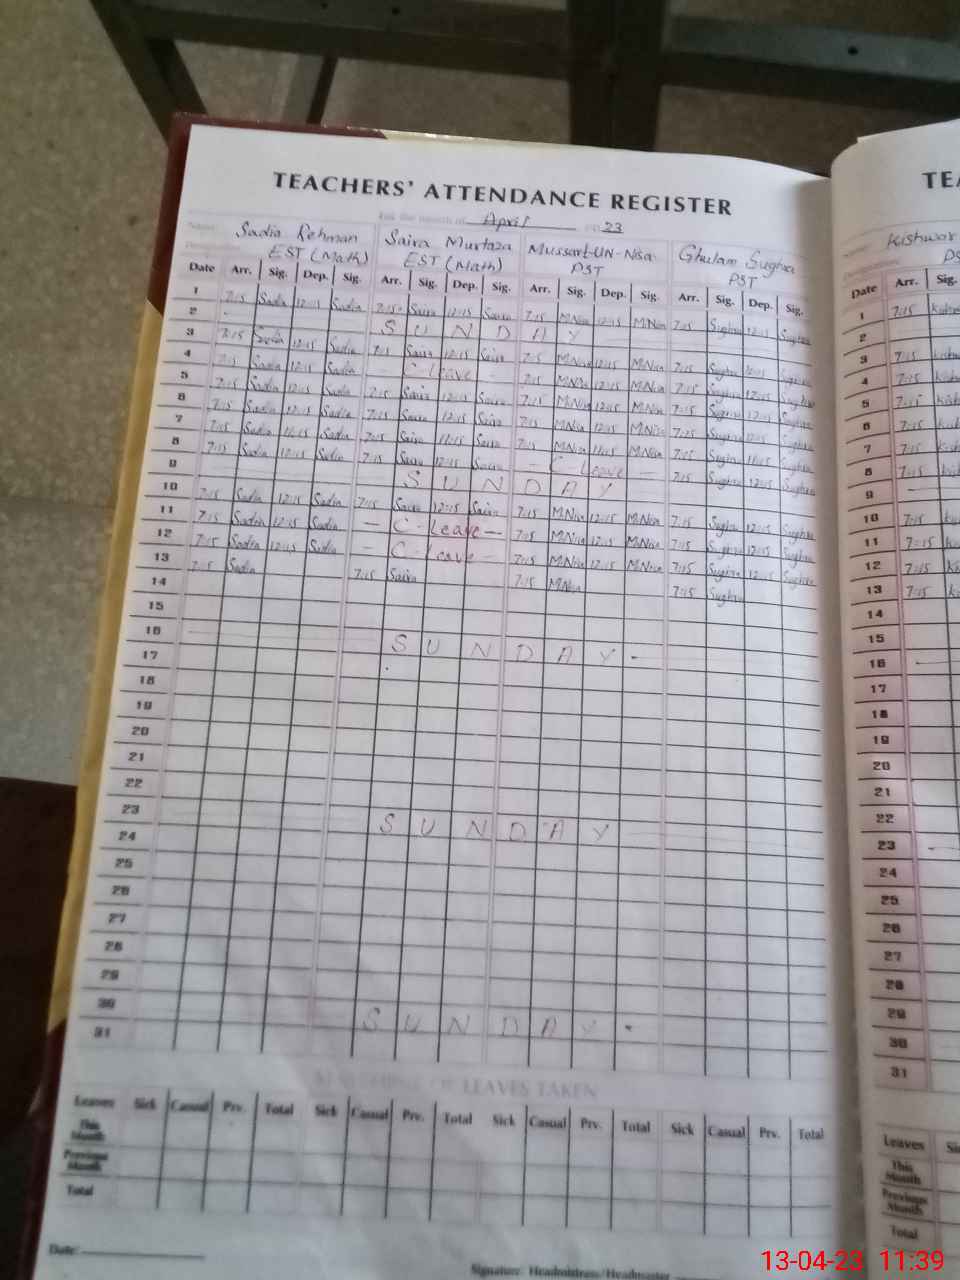 TEACHERS' ATTENDANCE REGISTER
TEA
For the month of April 2023
Name: Sadia Rehman Saira Murtaza Mussart-UN-Nisa Ghulam Sughra Kishwar
Designation: EST (Math) EST (Math) PST PST PS
Date Arr. Sig. Dep. Sig. Arr. Sig. Dep. Sig. Arr. Sig. Dep. Sig. Arr. Sig. Dep. Sig. Date Arr. Sig.
1 7:15 Sadia 12:15 Sadia 7:15 Saira 12:15 Saira 7:15 M.Nisa 12:15 M.Nisa 7:15 Sughra 12:15 Sughra 1 7:15
2 SUNDAY 2
3 7:15 Sadia 12:15 Sadia 7:15 Saira 12:15 Saira 7:15 M.Nisa 12:15 M.Nisa 7:15 Sughra 12:15 Sughra 3 7:15
4 7:15 Sadia 12:15 Sadia - C-Leave - 7:15 M.Nisa 12:15 M.Nisa 7:15 Sughra 12:15 Sughra 4 7:15
5 7:15 Sadia 12:15 Sadia 7:15 Saira 12:15 Saira 7:15 M.Nisa 12:15 M.Nisa 7:15 Sughra 12:15 Sughra 5 7:15
6 7:15 Sadia 12:15 Sadia 7:15 Saira 12:15 Saira 7:15 M.Nisa 12:15 M.Nisa 7:15 Sughra 12:15 Sughra 6 7:15
7 7:15 Sadia 11:15 Sadia 7:15 Saira 11:15 Saira 7:15 M.Nisa 11:15 M.Nisa 7:15 Sughra 11:15 Sughra 7 7:15
8 7:15 Sadia 12:15 Sadia 7:15 Saira 12:15 Saira - C-Leave - 7:15 Sughra 12:15 Sughra 8 7:15
9 SUNDAY 9
10 7:15 Sadia 12:15 Sadia 7:15 Saira 12:15 Saira 7:15 M.Nisa 12:15 M.Nisa 7:15 Sughra 12:15 Sughra 10 7:15
11 7:15 Sadia 12:15 Sadia - C-Leave - 7:15 M.Nisa 12:15 M.Nisa 7:15 Sughra 12:15 Sughra 11 7:15
12 7:15 Sadia 12:15 Sadia - C-Leave - 7:15 M.Nisa 12:15 M.Nisa 7:15 Sughra 12:15 Sughra 12 7:15
13 7:15 Sadia 7:15 Saira 7:15 M.Nisa 7:15 Sughra 13 7:15
14 14
15 15
16 SUNDAY 16
17 17
18 18
19 19
20 20
21 21
22 22
23 SUNDAY 23
24 24
25 25
26 26
27 27
28 28
29 29
30 SUNDAY 30
31 31
OF LEAVES TAKEN
Leaves Sick Casual Prv. Total Sick Casual Prv. Total Sick Casual Prv. Total Sick Casual Prv. Total Leaves
This Month This Month
Previous Month Previous Month
Total Total
Date:
Signature: Headmistress/Headmaster
13-04-23 11:39